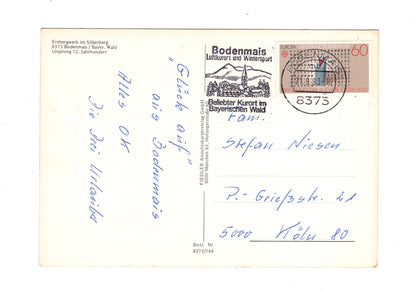 Erzbergwerk im Silberberg
8373 Bodenmais / Bayer. Wald
Ursprung 12. Jahrhundert
"Glück auf"
aus Bodenmais
Alles OK
Die drei Urlauber
FIEDLER Ansichtskartenverlag GmbH
8000 München 83
Best. Nr.
8373/144
Bodenmais
Luftkurort und Wintersport
Beliebter Kurort im
Bayerischen Wald
8373
EUROPA
60
Fam.
Stefan Niesen
P.-Griesstr. 21
5000 Köln 80